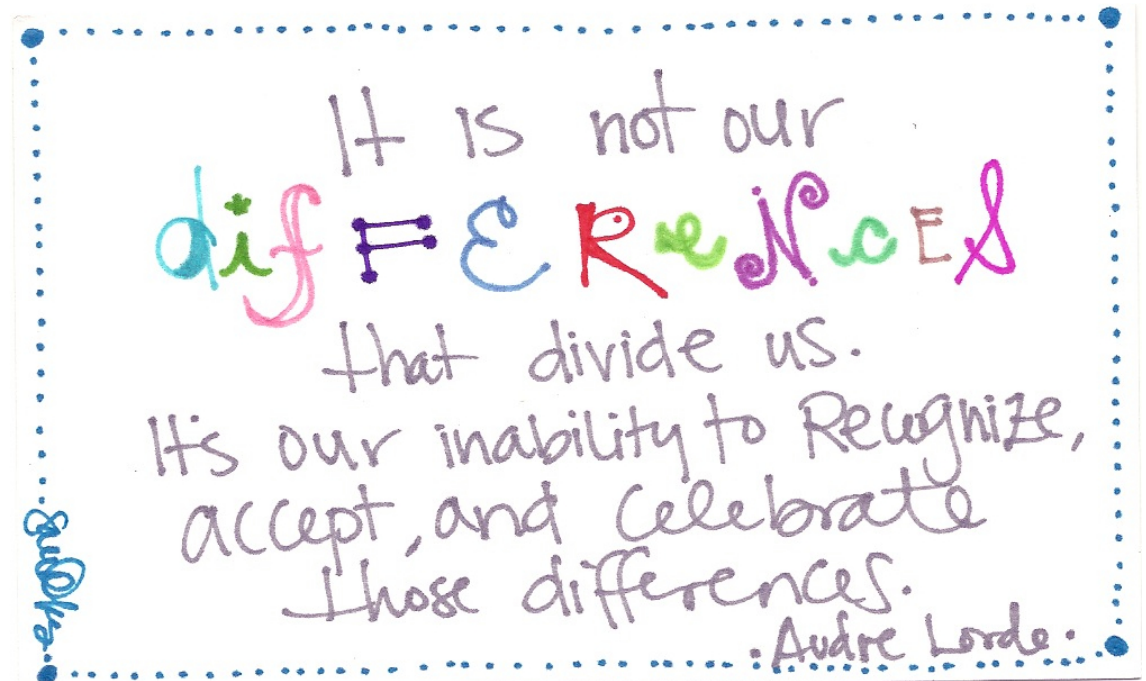 It is not our
difFEReNcES
that divide us.
It's our inability to Recognize,
accept, and celebrate
those differences.
·Audre Lorde·